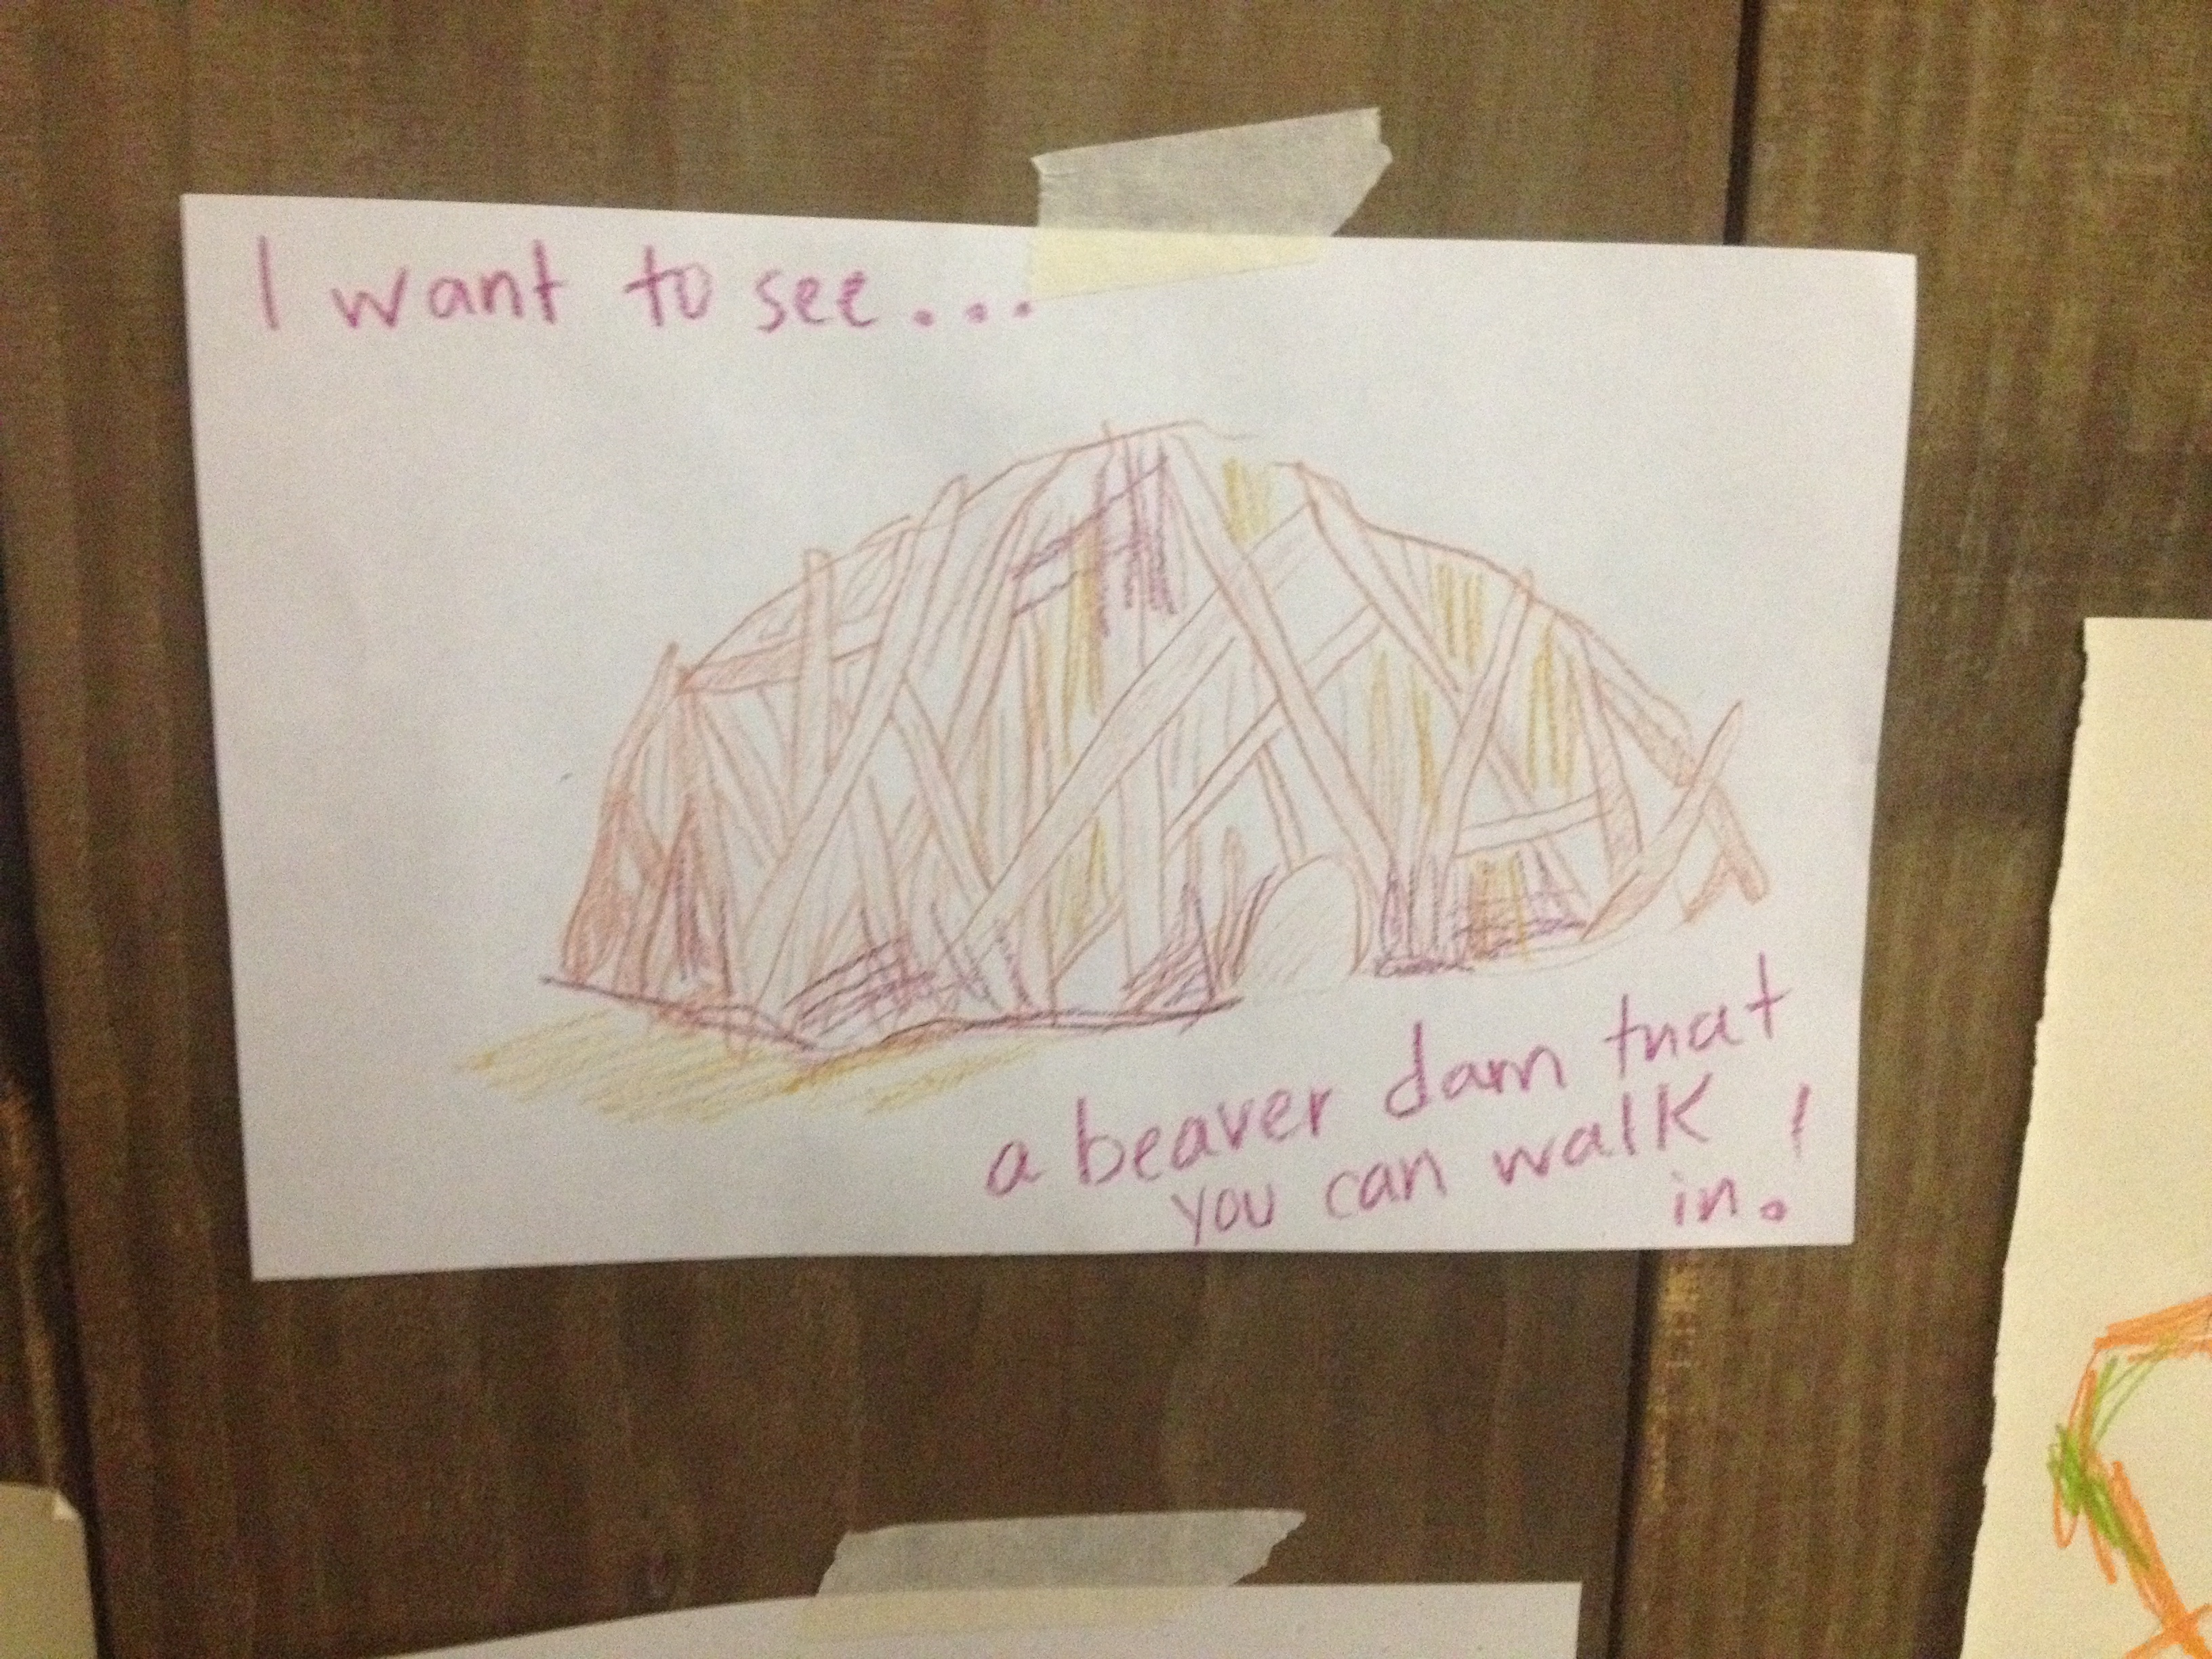 I want to see...
a beaver dam that
you can walk
in.!